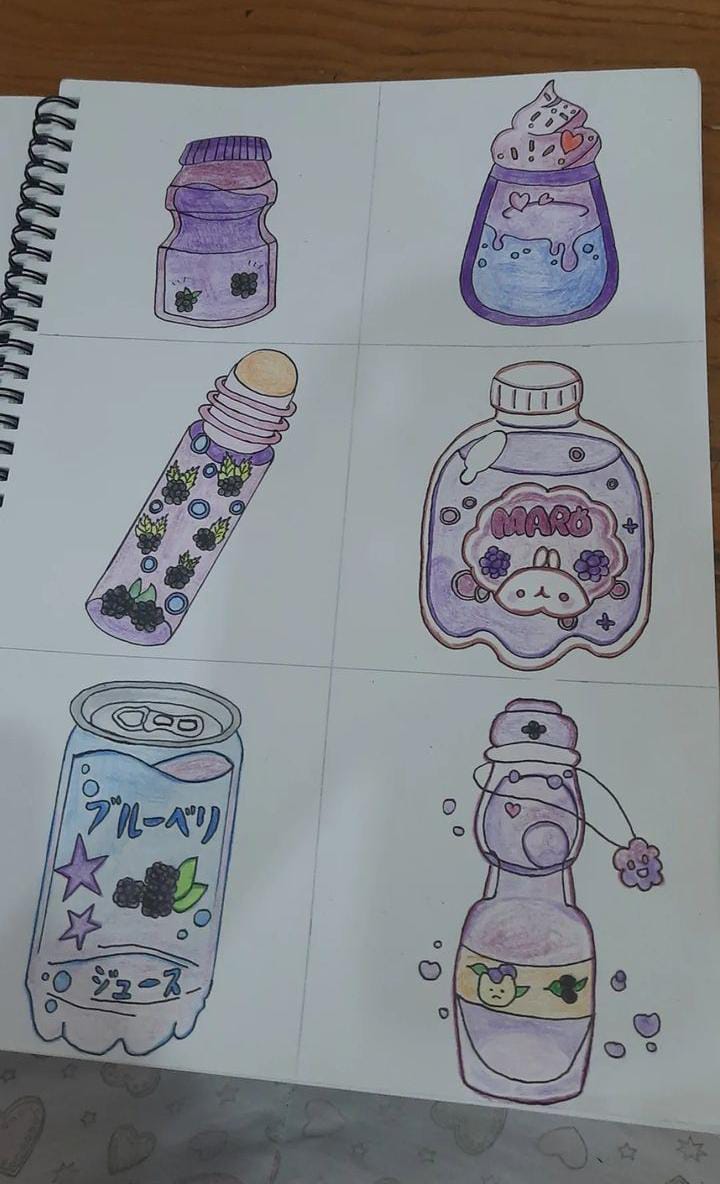 MARO
ブルーベリ
ジュース